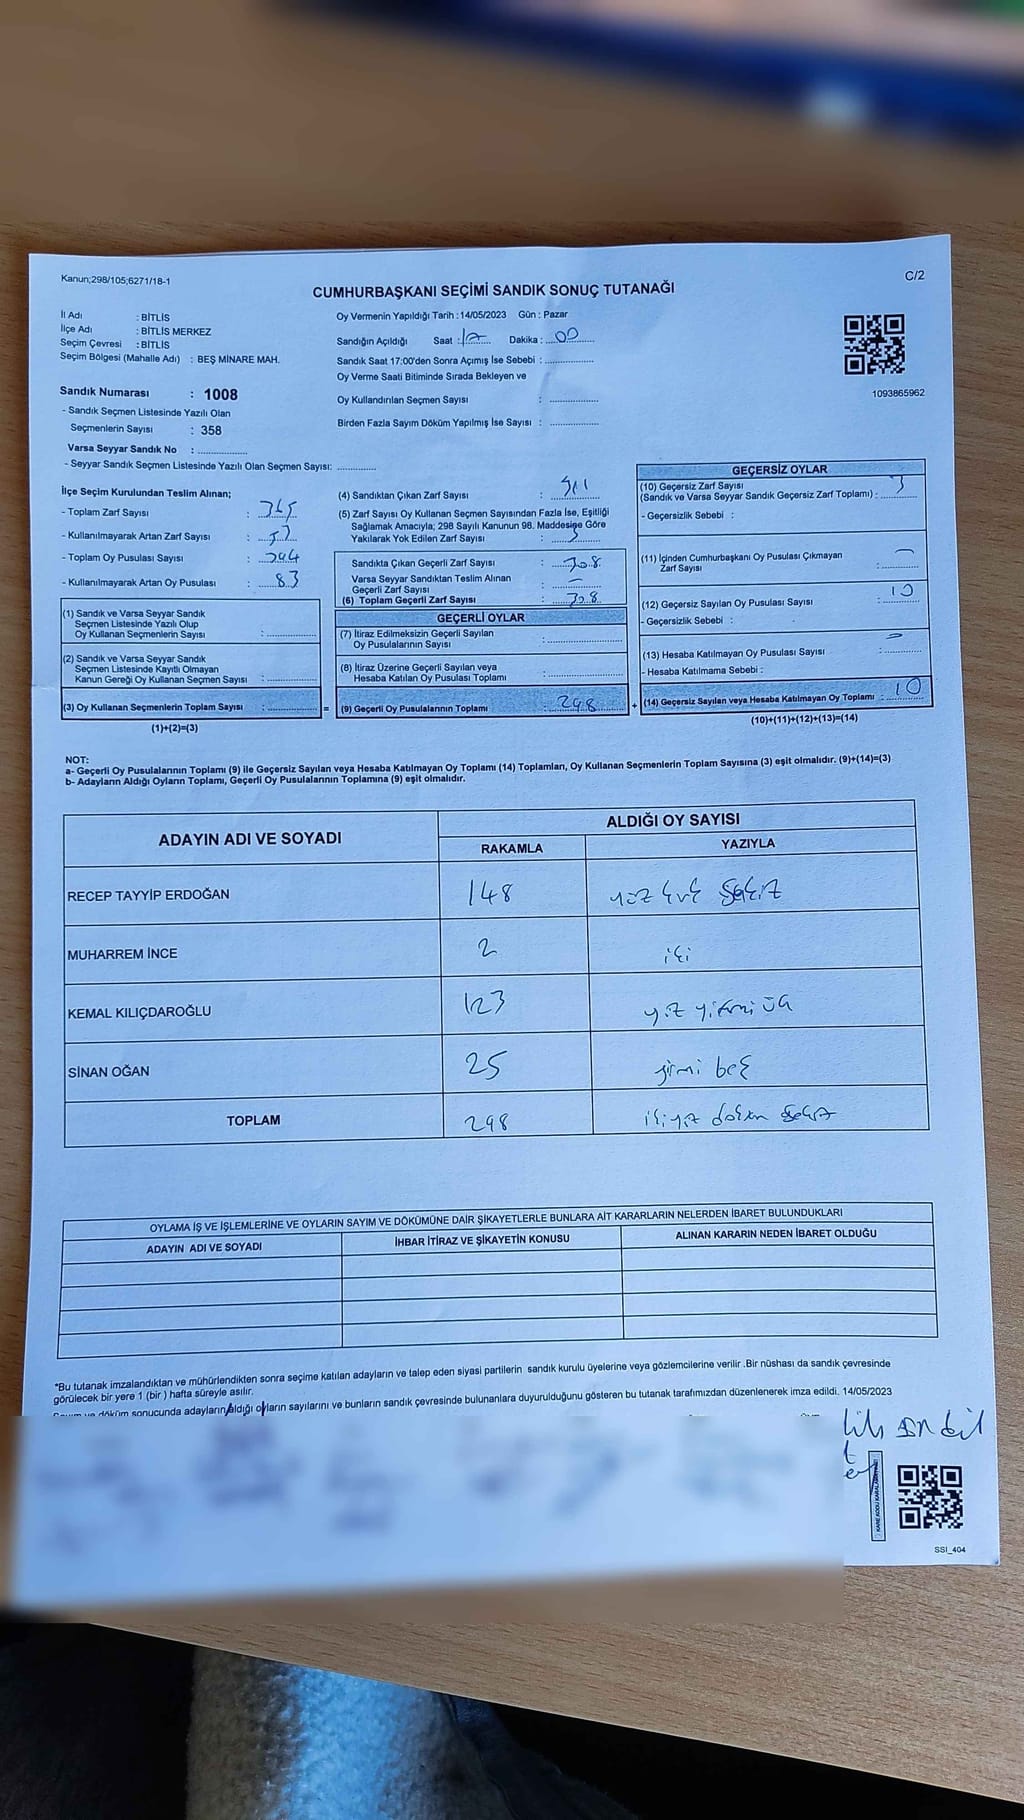 Kanun;298/105;6271/18-1
C/2
CUMHURBAŞKANI SEÇİMİ SANDIK SONUÇ TUTANAĞI
İl Adı : BİTLİS
İlçe Adı : BİTLİS MERKEZ
Seçim Çevresi : BİTLİS
Seçim Bölgesi (Mahalle Adı) : BEŞ MİNARE MAH.
Sandık Numarası : 1008
- Sandık Seçmen Listesinde Yazılı Olan
Seçmenlerin Sayısı : 358
Varsa Seyyar Sandık No :
- Seyyar Sandık Seçmen Listesinde Yazılı Olan Seçmen Sayısı:
Oy Vermenin Yapıldığı Tarih : 14/05/2023 Gün : Pazar
Sandığın Açıldığı Saat : 17 Dakika : 00
Sandık Saat 17:00'den Sonra Açımış İse Sebebi :
Oy Verme Saati Bitiminde Sırada Bekleyen ve
Oy Kullandırılan Seçmen Sayısı :
Birden Fazla Sayım Döküm Yapılmış İse Sayısı :
1093865962
İlçe Seçim Kurulundan Teslim Alınan;
- Toplam Zarf Sayısı : 365
- Kullanılmayarak Artan Zarf Sayısı :
- Toplam Oy Pusulası Sayısı :
- Kullanılmayarak Artan Oy Pusulası : 83
(1) Sandık ve Varsa Seyyar Sandık
Seçmen Listesinde Yazılı Olup
Oy Kullanan Seçmenlerin Sayısı :
(2) Sandık ve Varsa Seyyar Sandık
Seçmen Listesinde Kayıtlı Olmayan
Kanun Gereği Oy Kullanan Seçmen Sayısı :
(3) Oy Kullanan Seçmenlerin Toplam Sayısı : =
(1)+(2)=(3)
(4) Sandıktan Çıkan Zarf Sayısı : 311
(5) Zarf Sayısı Oy Kullanan Seçmen Sayısından Fazla İse, Eşitliği
Sağlamak Amacıyla; 298 Sayılı Kanunun 98. Maddesine Göre
Yakılarak Yok Edilen Zarf Sayısı : 3
Sandıkta Çıkan Geçerli Zarf Sayısı : 308
Varsa Seyyar Sandıktan Teslim Alınan
Geçerli Zarf Sayısı : –
(6) Toplam Geçerli Zarf Sayısı : 308
GEÇERLİ OYLAR
(7) İtiraz Edilmeksizin Geçerli Sayılan
Oy Pusulalarının Sayısı :
(8) İtiraz Üzerine Geçerli Sayılan veya
Hesaba Katılan Oy Pusulası Toplamı :
(9) Geçerli Oy Pusulalarının Toplamı : 298 +
GEÇERSİZ OYLAR
(10) Geçersiz Zarf Sayısı
(Sandık ve Varsa Seyyar Sandık Geçersiz Zarf Toplamı) : 3
- Geçersizlik Sebebi :
(11) İçinden Cumhurbaşkanı Oy Pusulası Çıkmayan
Zarf Sayısı : –
(12) Geçersiz Sayılan Oy Pusulası Sayısı : 10
- Geçersizlik Sebebi :
(13) Hesaba Katılmayan Oy Pusulası Sayısı :
- Hesaba Katılmama Sebebi :
(14) Geçersiz Sayılan veya Hesaba Katılmayan Oy Toplamı : 10
(10)+(11)+(12)+(13)=(14)
NOT:
a- Geçerli Oy Pusulalarının Toplamı (9) ile Geçersiz Sayılan veya Hesaba Katılmayan Oy Toplamı (14) Toplamları, Oy Kullanan Seçmenlerin Toplam Sayısına (3) eşit olmalıdır. (9)+(14)=(3)
b- Adayların Aldığı Oyların Toplamı, Geçerli Oy Pusulalarının Toplamına (9) eşit olmalıdır.
ADAYIN ADI VE SOYADI
ALDIĞI OY SAYISI
RAKAMLA YAZIYLA
RECEP TAYYİP ERDOĞAN 148 yüz kırk sekiz
MUHARREM İNCE 2 iki
KEMAL KILIÇDAROĞLU 123 yüz yirmi üç
SİNAN OĞAN 25 yirmi beş
TOPLAM 298 ikiyüz doksan sekiz
OYLAMA İŞ VE İŞLEMLERİNE VE OYLARIN SAYIM VE DÖKÜMÜNE DAİR ŞİKAYETLERLE BUNLARA AİT KARARLARIN NELERDEN İBARET BULUNDUKLARI
ADAYIN ADI VE SOYADI İHBAR İTİRAZ VE ŞİKAYETİN KONUSU ALINAN KARARIN NEDEN İBARET OLDUĞU
*Bu tutanak imzalandıktan ve mühürlendikten sonra seçime katılan adayların ve talep eden siyasi partilerin sandık kurulu üyelerine veya gözlemcilerine verilir .Bir nüshası da sandık çevresinde
görülecek bir yere 1 (bir ) hafta süreyle asılır.
döküm sonucunda adayların aldığı oyların sayılarını ve bunların sandık çevresinde bulunanlara duyurulduğunu gösteren bu tutanak tarafımızdan düzenlenerek imza edildi. 14/05/2023
SSI_404